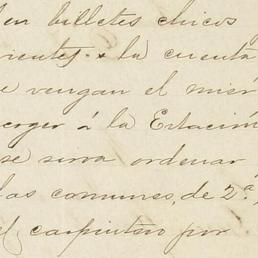 en billetes chicos
rientes a la cuenta
e vengan el mier
coger á la Estación
se sirva ordenar
las comunes, de 2ª,
el carpintero por